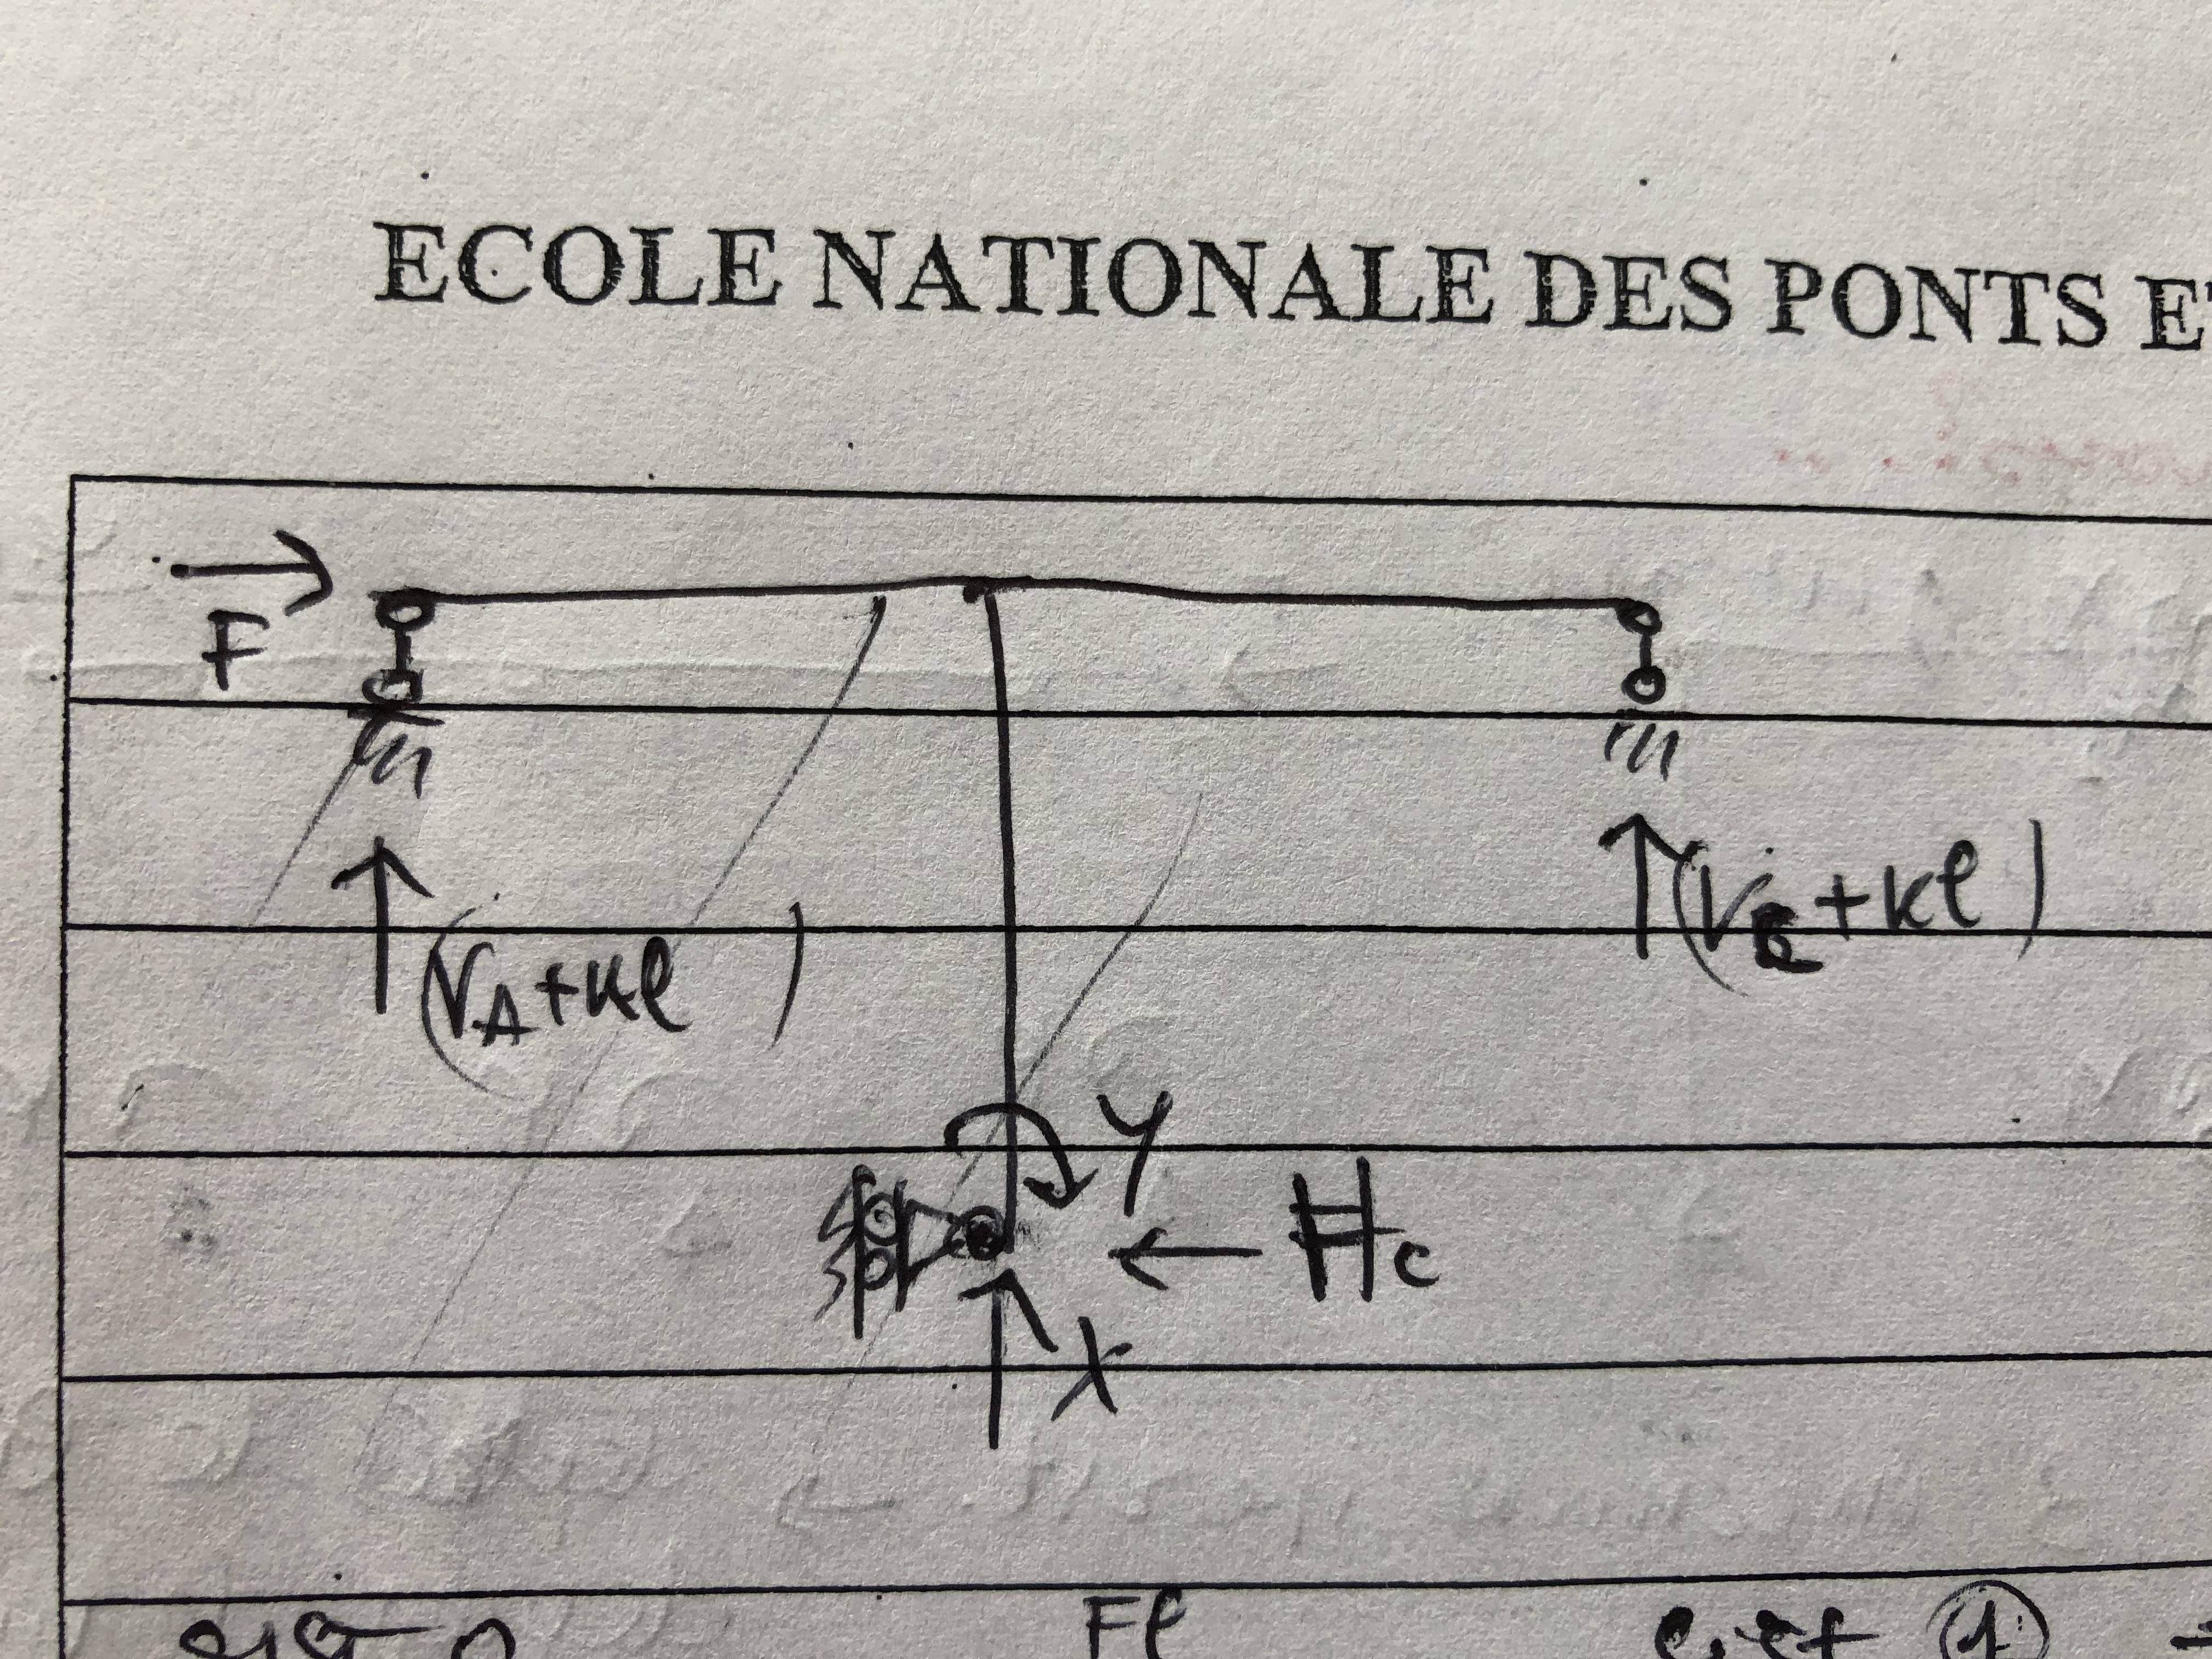 ECOLE NATIONALE DES PONTS E
F
(VA+kl)
(VB+kl)
Y
Hc
X
Fl